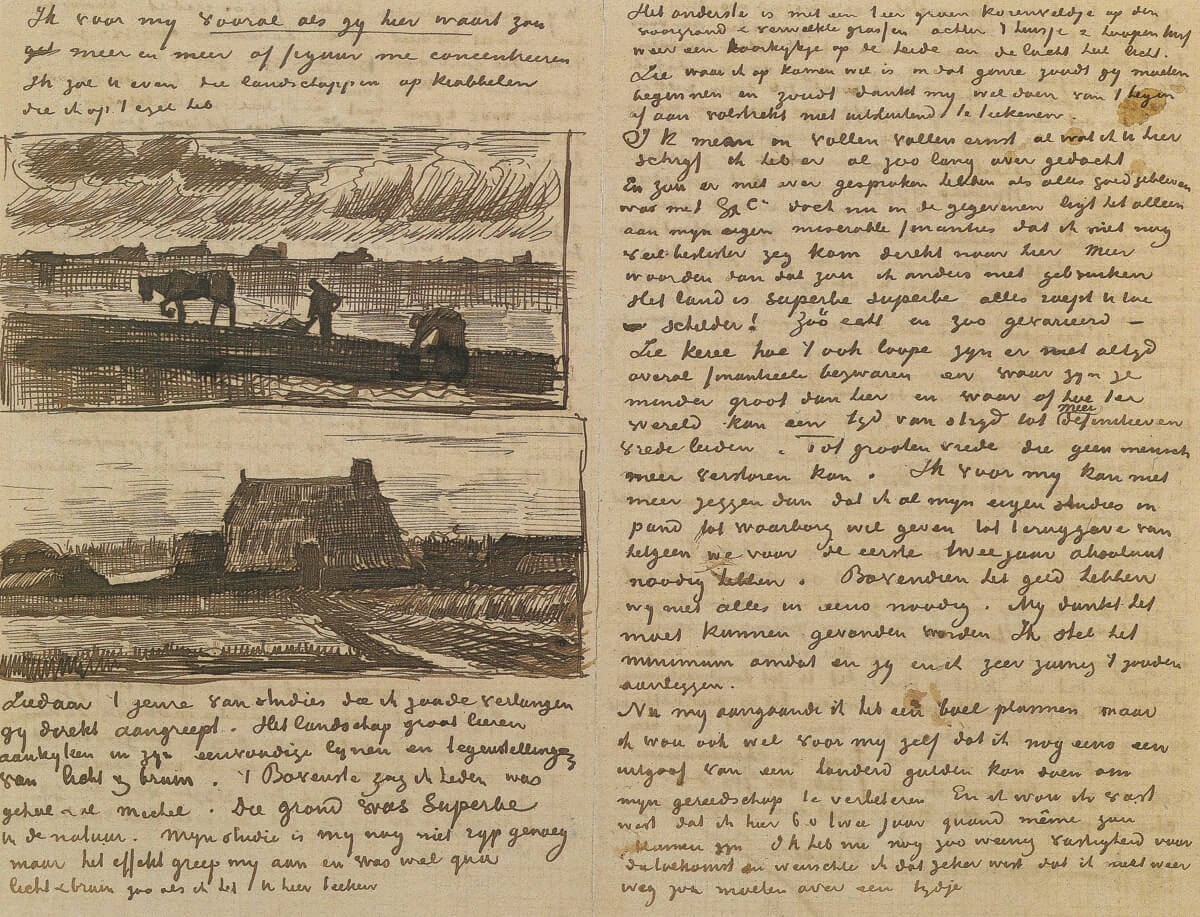 Ik voor my vooral als gy hier waart zou
meer en meer op figuur me concentreeren
Ik zal u even die landschappen op krabbelen
die ik op 't ezel heb
Ziedaar 't genre van studies die ik zoude verlangen
gy direkt aangreept. Het landschap groot leeren
aankyken in zyn eenvoudige lynen en tegenstellingen
van licht & bruin. 't Bovenste zag ik heden was
geheel & al Michel. Die grond was Superbe
in de natuur. Myn studie is my nog niet ryp genoeg
maar het effekt greep my aan en was wel qua
licht & bruin zoo als ik het U hier teeken
Het onderste is met een teer groen korenveldje op den
voorgrond & verwelkte grassen achter 't huisje 2 hoopen turf
weer een doorkykje op de heide en de lucht heel licht.
Zie waar ik op komen wil is in dat genre zoudt gy moeten
beginnen en zoudt dunkt my wel doen van 't begin
af aan volstrekt niet uitsluitend te teekenen.
Ik meen in vollen vollen ernst al wat ik U hier
schryf ik heb er al zoo lang over gedacht
En zou er niet over gesproken hebben als alles goed gebleven
was met G & Cie doch nu in de gegevenen ligt het alleen
aan myn eigen miserable finanties dat ik niet nog
veel beslister zeg kom direkt naar hier Meer
woorden dan dat zou ik anders niet gebruiken
Het land is superbe superbe alles roept U toe
schilder! zóó echt en zoo gevarieerd —
Zie kerel hoe 't ook loope zyn er niet altyd
overal finantieele bezwaren en waar zyn ze
minder groot dan hier en waar of hoe ter
wereld kan een tyd van stryd tot meer definitieven
vrede leiden. Tot grooten vrede die geen mensch
meer verstoren kan. Ik voor my kan niet
meer zeggen dan dat ik al myn eigen studies in
pand tot waarborg wil geven tot teruggave van
hetgeen we voor de eerste twee jaar absoluut
noodig hebben. Bovendien het geld hebben
wy niet alles in eens noodig. My dunkt het
moet kunnen gevonden worden Ik stel het
minimum omdat en gy en ik zeer zuinig 't zouden
aanleggen.
Nu my aangaande ik heb een boel plannen maar
ik wou ook wel voor my zelf dat ik nog eens een
uitgaaf van een honderd gulden kon doen om
myn gereedschap te verbeteren En ik wou ik vast
wist dat ik hier b.v. twee jaar quand même zou
kunnen zyn Ik heb nu nog zoo weinig vastigheid voor
de toekomst en wenschte ik dat zeker wist dat ik niet weer
weg zou moeten over een tydje